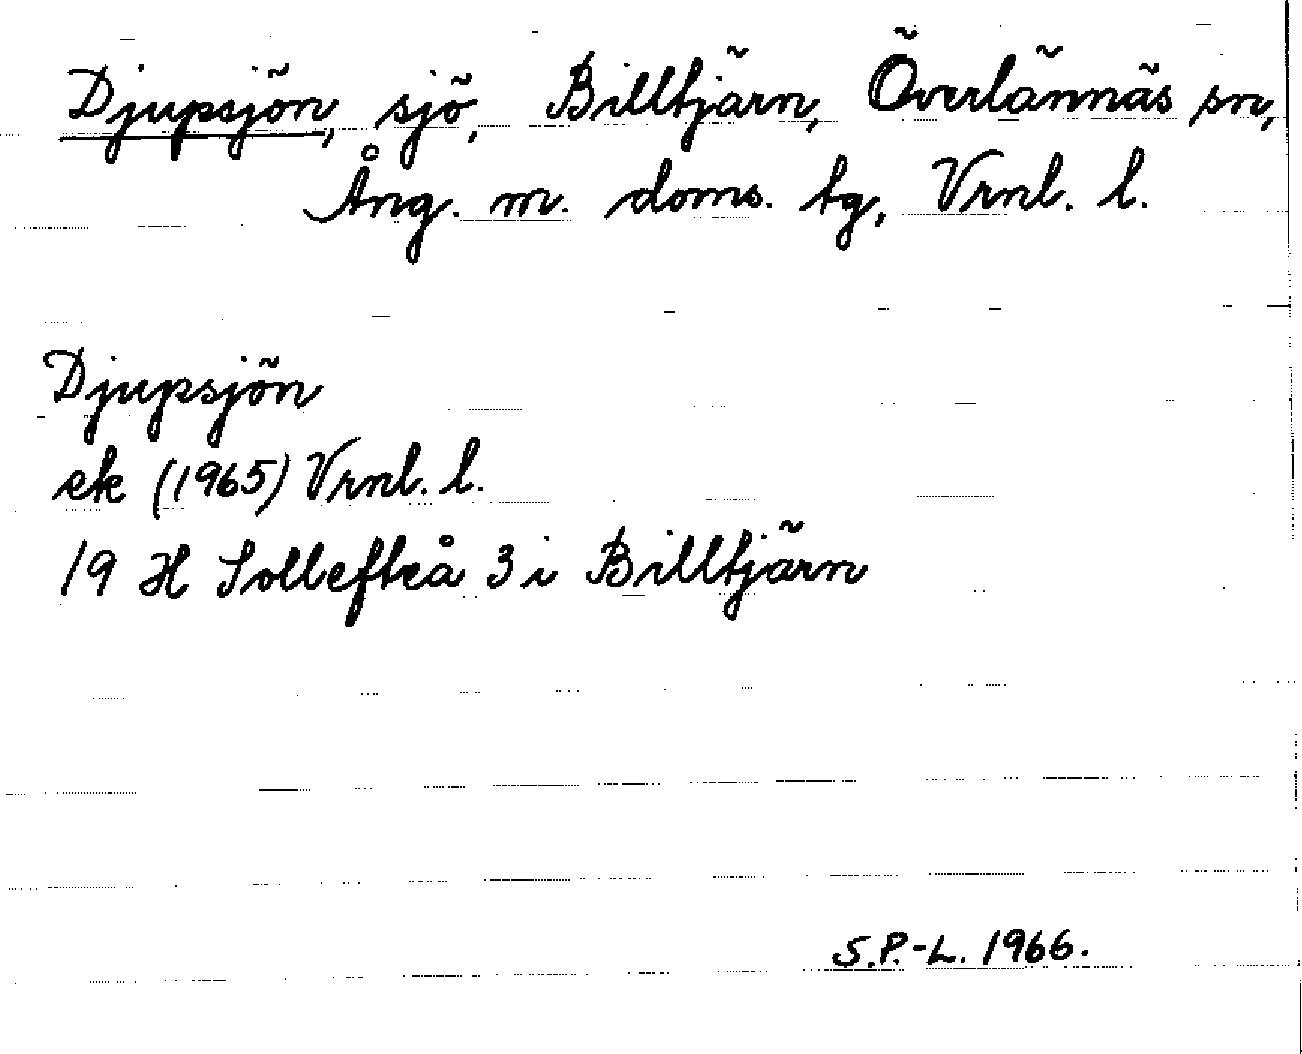 Djupsjön, sjö, Billtjärn, Överlännäs sn,
Ång. m. doms. tg, Vrnl. l.
Djupsjön
ek (1965) Vrnl. l.
19 H Sollefteå 3 i Billtjärn
S.P.-L. 1966.